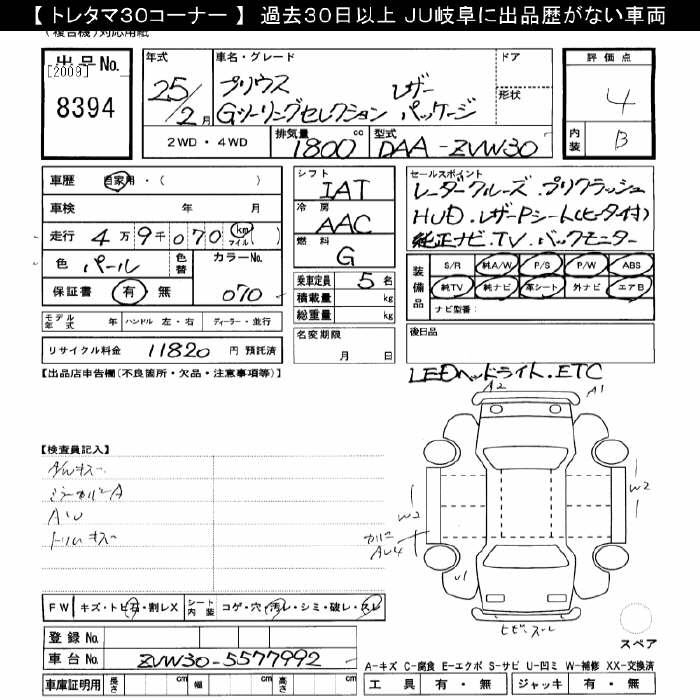 【 トレタマ30コーナー 】 過去30日以上 JU岐阜に出品歴がない車両
(複合機)対応用紙
出品No.
[2009]
8394
年式
25/2月
車名・グレード
プリウス レザー
Gツーリングセレクション パッケージ
ドア
形状
評価点
4
内装
B
2WD・4WD
排気量 1800 cc
型式 DAA-ZVW30
車歴 自家用・( )
車検 年 月
走行 4万9千070 km マイル ( )
色 パール 色替 カラーNo. 070
保証書 有 無
モデル年式 年 ハンドル 左・右 ディーラー・並行
リサイクル料金 11820 円 預託済
シフト
IAT
冷房
AAC
燃料
G
乗車定員 5 名
積載量 kg
総重量 kg
名変期限
月 日
セールスポイント
レーダークルーズ.プリクラッシュ
HUD.レザーPシート(ヒーター付)
純正ナビ.TV.バックモニター
装備品
S/R 純A/W P/S P/W ABS
純TV 純ナビ 革シート 外ナビ エアB
ナビ型番:
後日品
LEDヘッドライト.ETC
【出品店申告欄(不良箇所・欠品・注意事項等)】
【検査員記入】
A2
A1
W2
W2
U1
FW キズ・トビ石・割レX シート内装 コゲ・穴・汚レ・シミ・破レ・スレ
登録No.
車台No. ZVW30-5577992
車庫証明用 長さ cm 幅 cm 高さ cm
スペア
A-キズ C-腐食 E-エクボ S-サビ U-凹ミ W-補修 XX-交換済
工具 有・無 ジャッキ 有・無